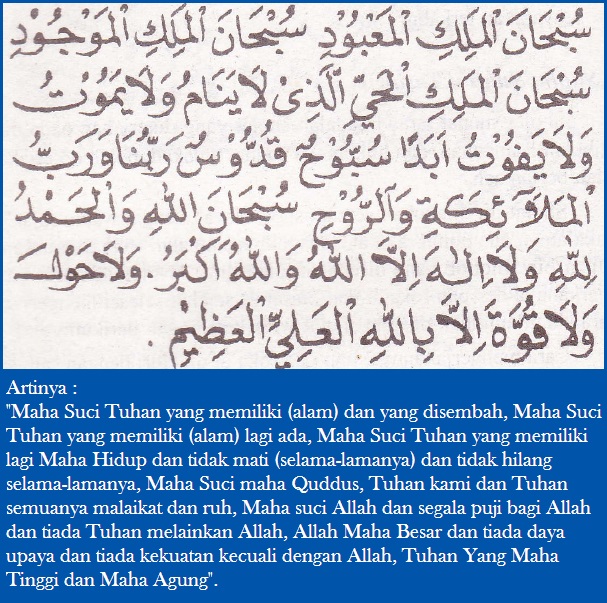 سُبْحَانَ الْمَلِكِ الْمَعْبُوْدِ سُبْحَانَ الْمَلِكِ الْمَوْجُوْدِ
سُبْحَانَ الْمَلِكِ الْحَيِّ الَّذِىْ لَا يَنَامُ وَلَا يَمُوْتُ
وَلَا يَفُوْتُ اَبَدًا سُبُّوْحٌ قُدُّوْسٌ رَبُّنَا وَرَبُّ
الْمَلَآئِكَةِ وَالرُّوْحِ سُبْحَانَ اللهِ وَالْحَمْدُ
لِلّٰهِ وَلَا اِلٰهَ اِلَّا اللهُ وَاللهُ اَكْبَرُ. وَلَا حَوْلَ
وَلَا قُوَّةَ اِلَّا بِاللهِ الْعَلِيِّ الْعَظِيْمِ.
Artinya :
"Maha Suci Tuhan yang memiliki (alam) dan yang disembah, Maha Suci
Tuhan yang memiliki (alam) lagi ada, Maha Suci Tuhan yang memiliki
lagi Maha Hidup dan tidak mati (selama-lamanya) dan tidak hilang
selama-lamanya, Maha Suci maha Quddus, Tuhan kami dan Tuhan
semuanya malaikat dan ruh, Maha suci Allah dan segala puji bagi Allah
dan tiada Tuhan melainkan Allah, Allah Maha Besar dan tiada daya
upaya dan tiada kekuatan kecuali dengan Allah, Tuhan Yang Maha
Tinggi dan Maha Agung".